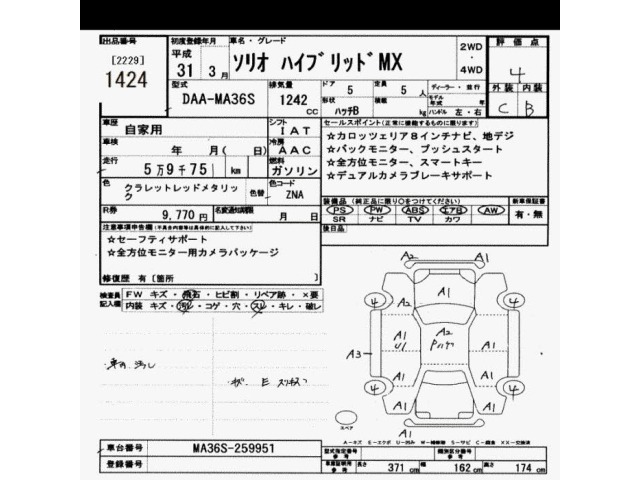 出品番号 初度登録年月 車名・グレード 評価点
[2229]
1424
平成
31 3月
ソリオ ハイブリッドMX
2WD
・
4WD
4
型式 排気量 ドア 定員 ディーラー・並行 外装 内装
DAA-MA36S 1242 cc
5 5 人
形状 積載 モデル年式 年
ハッチB kg ハンドル 左・右
C B
車歴 自家用
シフト IAT
セールスポイント(正常に機能するものに限ります)
車検 年 月(日)
冷房 AAC
☆カロッツェリア8インチナビ、地デジ
☆バックモニター、プッシュスタート
走行 5万9千75 km
燃料 ガソリン
☆全方位モニター、スマートキー
☆デュアルカメラブレーキサポート
色 クラレットレッドメタリック
色替
色コード ZNA
装備品(純正品に限り○をつけてください) 新車保証書
PS PW ABS エアB AW 有・無
SR ナビ TV カワ
R券 9,770円 名変通知期限 月 日
後日品
注意事項申告欄(不具合内容等は具体的に記入して下さい)
☆セーフティサポート
☆全方位モニター用カメラパッケージ
修復歴 有[箇所
検査員記入欄
FW キズ・飛石・ヒビ割・リペア跡・×要
内装 キズ・汚レ・コゲ・穴・スレ・キレ・破レ
A2 A1
A1
4 A2 4
A1 A1 A1
U1 A2
A3 A1
A1 A1
4 A1 4
A1
スペア
A-キズ E-エクボ U-凹み W-補修跡 S-サビ C-腐食 XX-交換済
車台番号 MA36S-259951
登録番号
型式指定番号 類別区分番号
車庫証明用参考 長さ 371 cm 幅 162 cm 高さ 174 cm